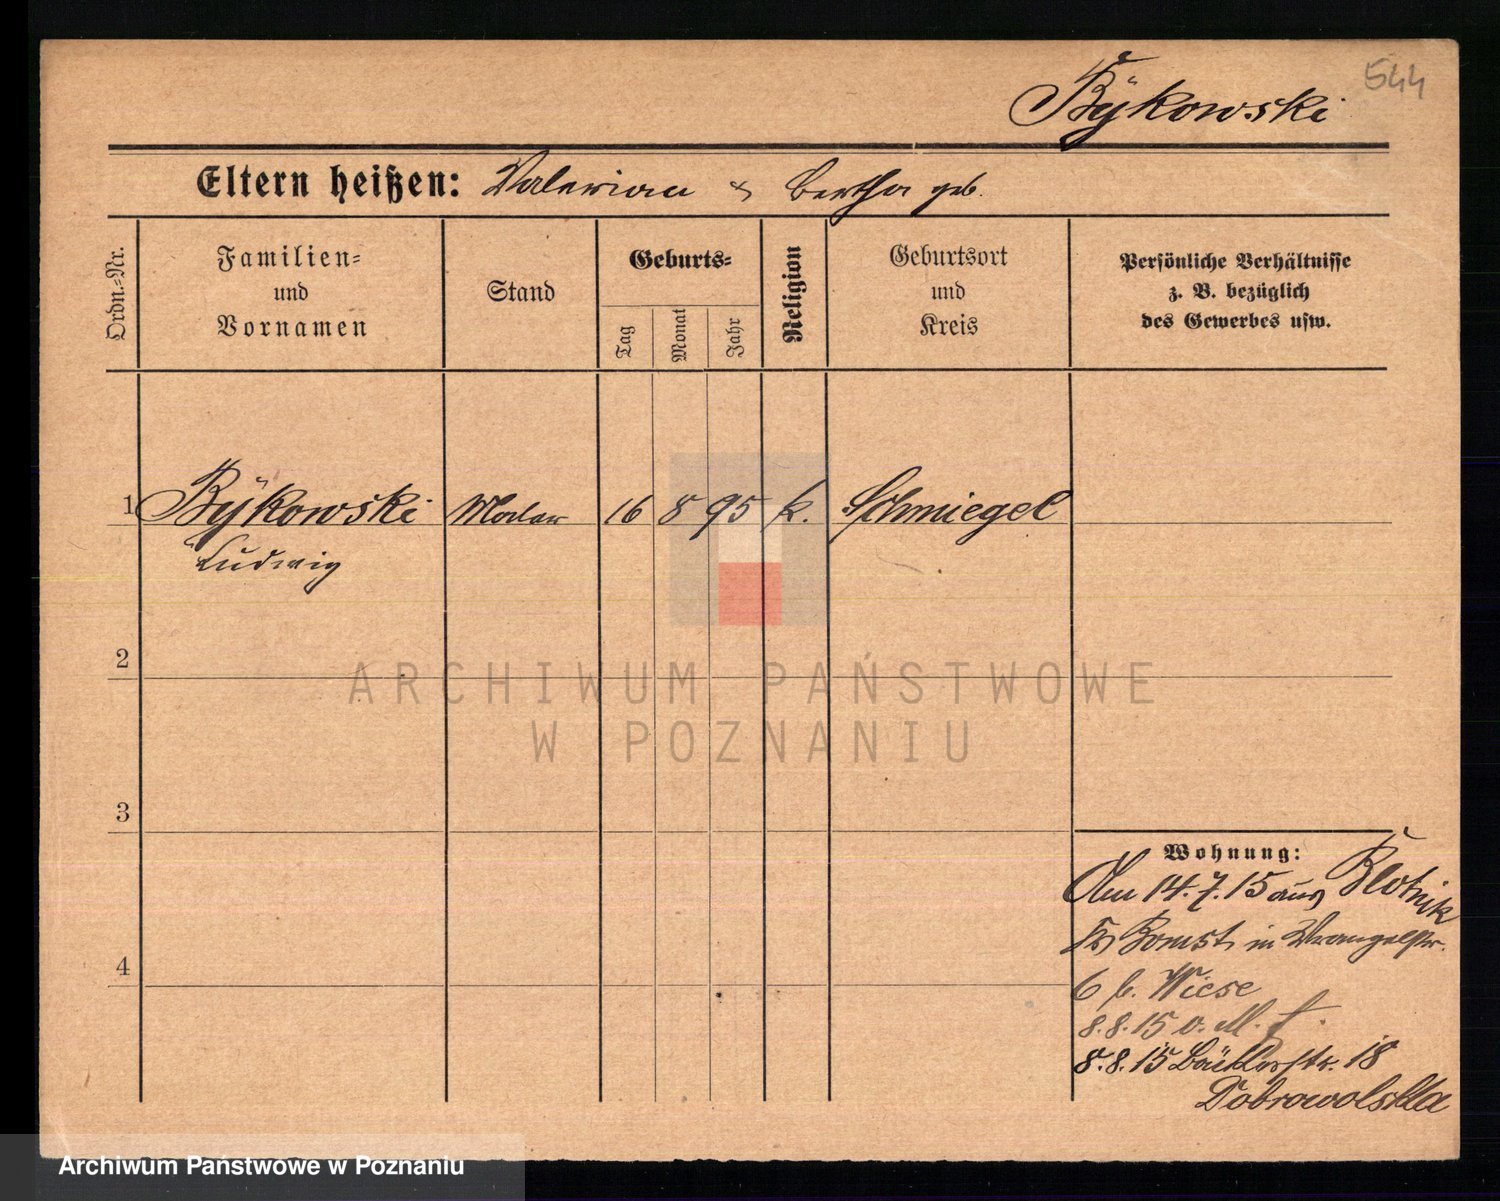 544
Bÿkowski
Eltern heißen: Valerian & Bertha geb.
Ordn.=Nr.
Familien=
und
Vornamen
Stand
Geburts=
Tag
Monat
Jahr
Religion
Geburtsort
und
Kreis
Persönliche Verhältnisse
z. B. bezüglich
des Gewerbes usw.
1 Bÿkowski Maler 16 8 95 k. Schmiegel
Ludwig
2
ARCHIWUM PAŃSTWOWE
W POZNANIU
3
Wohnung:
Am 14.7.15 aus Blotnik
Bomst in Wrangelstr.
4
6 b. Wiese
8.8.15 v. M.
8.8.15 18
Dobrowolska
Archiwum Państwowe w Poznaniu